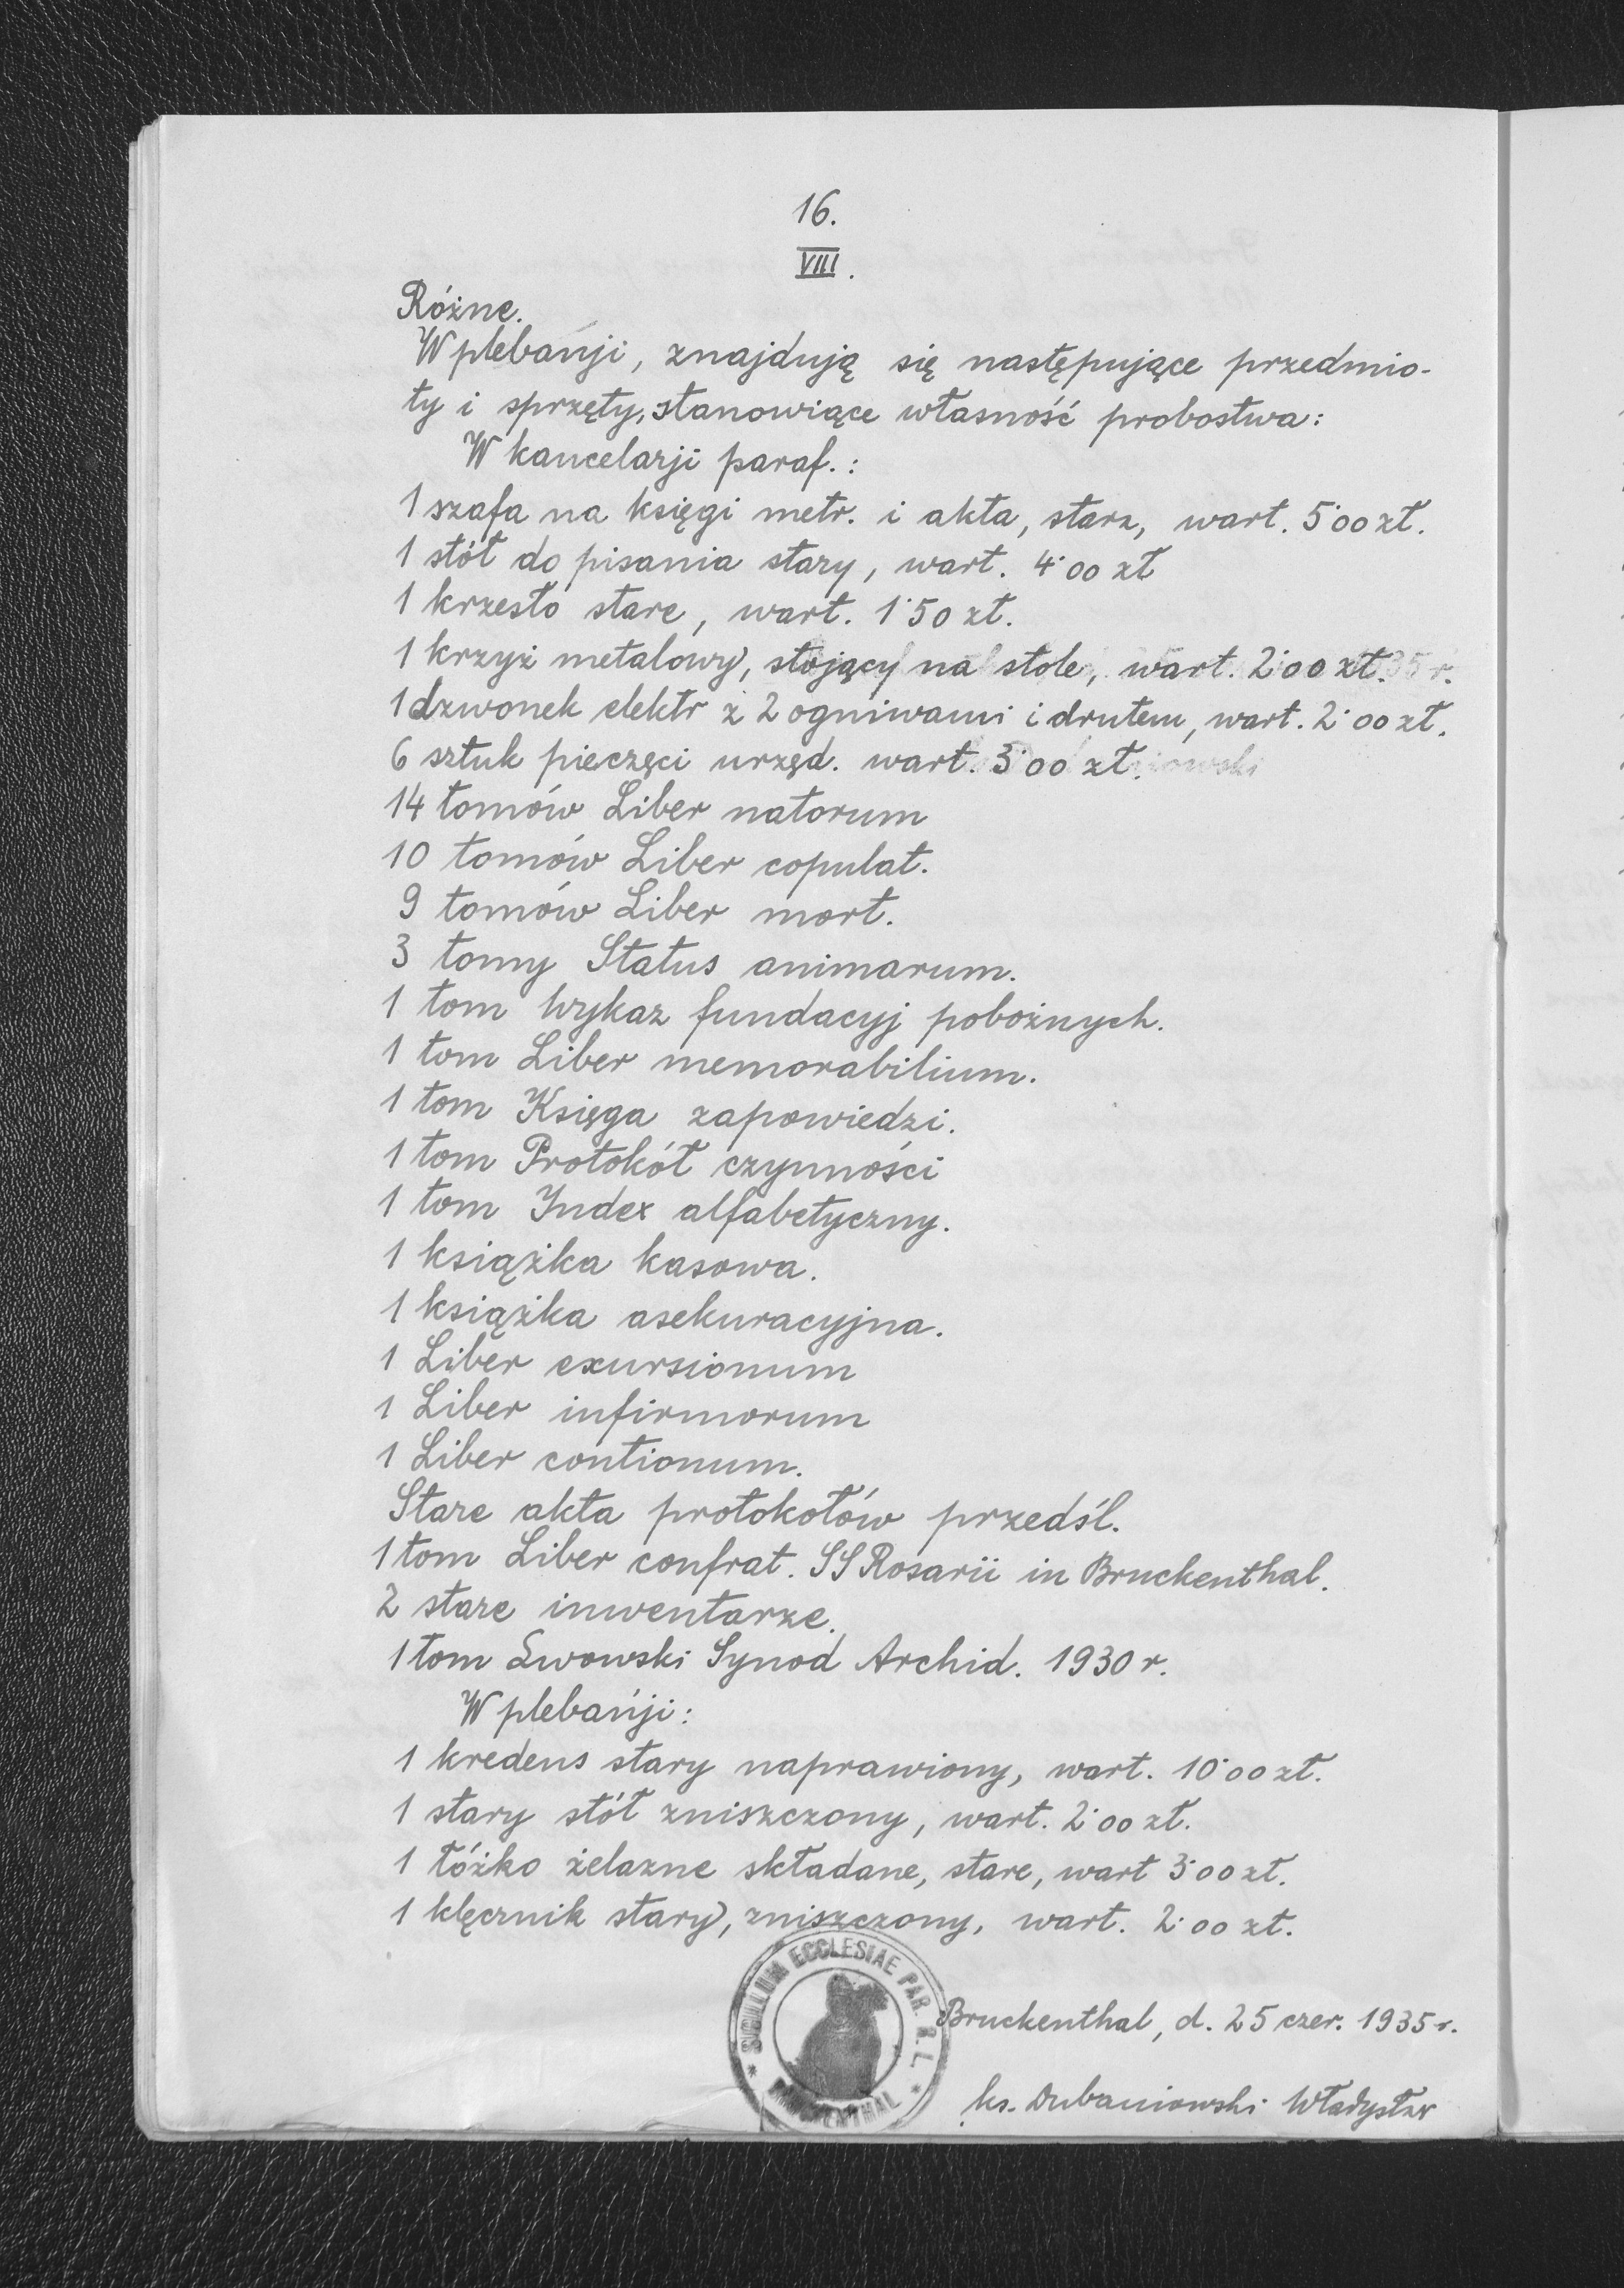 16.
VIII.
Różne.
W plebańji, znajdują się następujące przedmio-
ty i sprzęty, stanowiące własność probostwa:
W kancelarji paraf.:
1 szafa na księgi metr. i akta, stara, wart. 5·00 zł.
1 stół do pisania stary, wart. 4·00 zł
1 krzesło stare, wart. 1·50 zł.
1 krzyż metalowy, stojący na stole, wart. 2·00 zł.
1 dzwonek elektr z 2 ogniwami i drutem, wart. 2·00 zł.
6 sztuk pieczęci urzęd. wart. 3·00 zł.
14 tomów Liber natorum
10 tomów Liber copulat.
9 tomów Liber mort.
3 tomy Status animarum.
1 tom Wykaz fundacyj pobożnych.
1 tom Liber memorabilium.
1 tom Księga zapowiedzi.
1 tom Protokół czynności
1 tom Index alfabetyczny.
1 książka kasowa.
1 książka asekuracyjna.
1 Liber exursionum
1 Liber infirmorum
1 Liber contionum.
Stare akta protokołów przedśl.
1 tom Liber confrat. SS Rosarii in Bruckenthal.
2 stare inwentarze.
1 tom Lwowski Synod Archid. 1930 r.
W plebańji:
1 kredens stary naprawiony, wart. 10·00 zł.
1 stary stół zniszczony, wart. 2·00 zł.
1 łóżko żelazne składane, stare, wart 3·00 zł.
1 klęcznik stary, zniszczony, wart. 2·00 zł.
* SIGILLUM ECCLESIAE PAR. R. L. *
BRUCKENTHAL
Bruckenthal, d. 25 czer. 1935 r.
ks. Dubaniowski Władysław